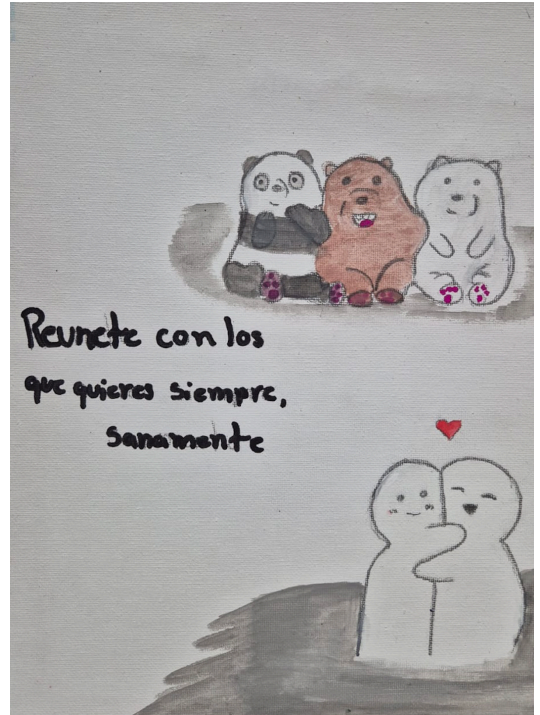 Reunete con los
que quieres siempre,
sanamente